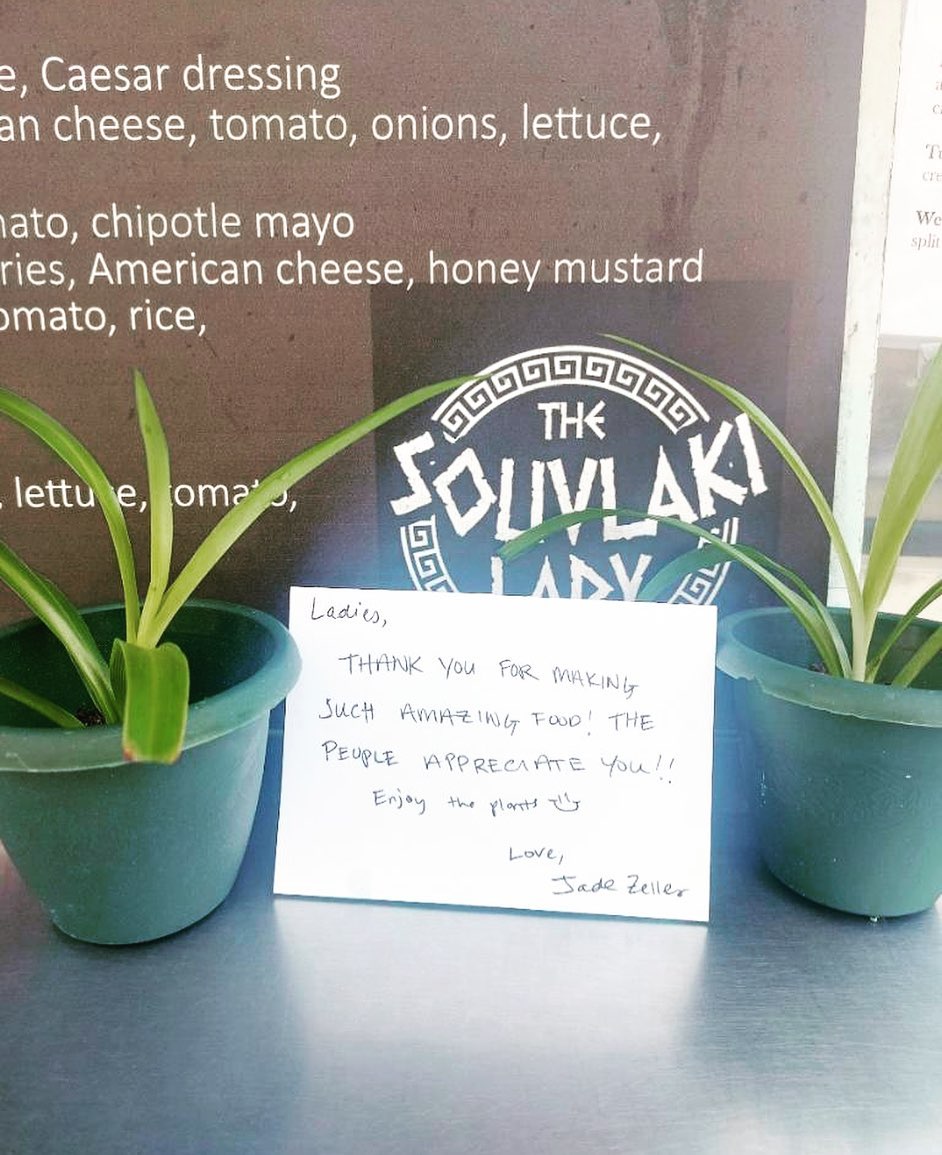 e, Caesar dressing
an cheese, tomato, onions, lettuce,
nato, chipotle mayo
ries, American cheese, honey mustard
omato, rice,
lettuce, tomato,
THE
SOUVLAKI
LADY
Tu
cre
We
split
Ladies,
THANK YOU FOR MAKING
SUCH AMAZING FOOD! THE
PEOPLE APPRECIATE YOU!!
Enjoy the plants
Love,
Jade Zeller